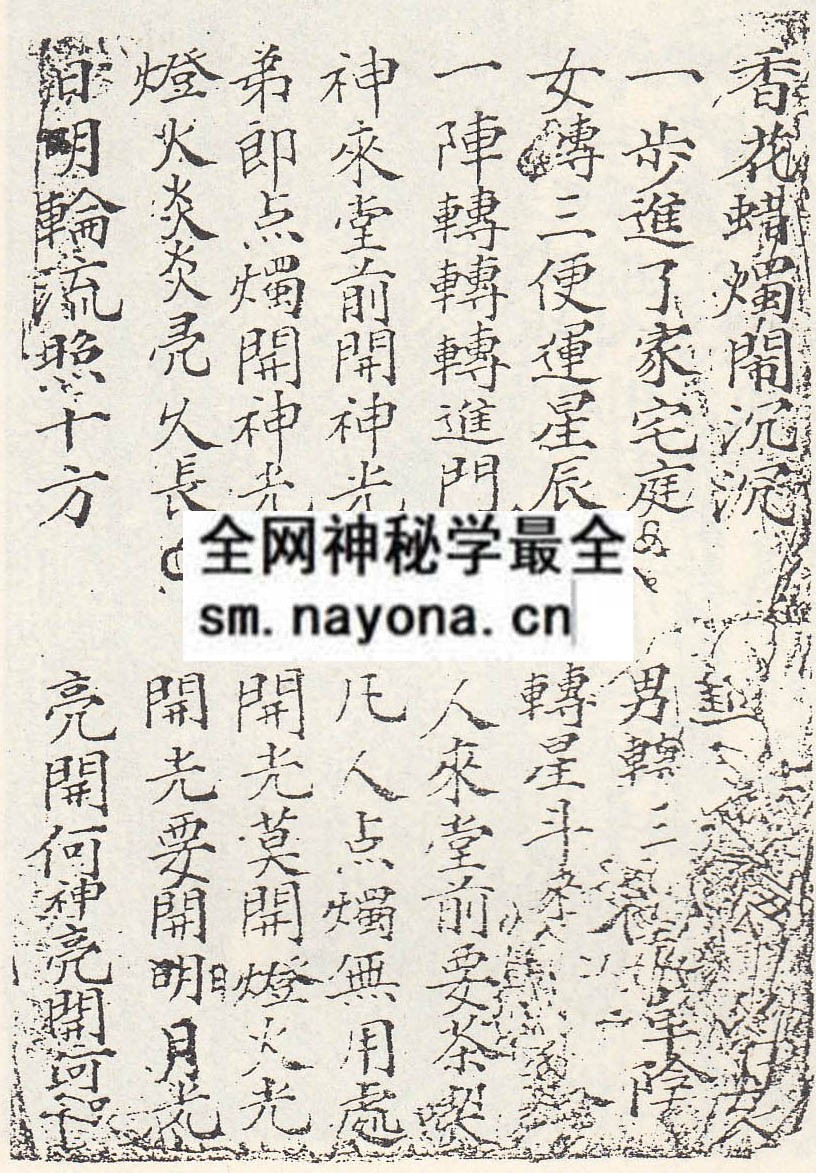 香花蜡燭鬧沉沉
一步進了家宅庭 男轉三
女轉三便運星辰 轉星斗
一陣轉轉轉進門 人來堂前要茶喫
神來堂前開神光 凡人点燭無用處
弟郎点燭開神光 開光莫開燈火光
燈火炎炎亮久長 開光要開明月光
日明輪流照十方 亮開何神亮開何神
全网神秘学最全
sm.nayona.cn